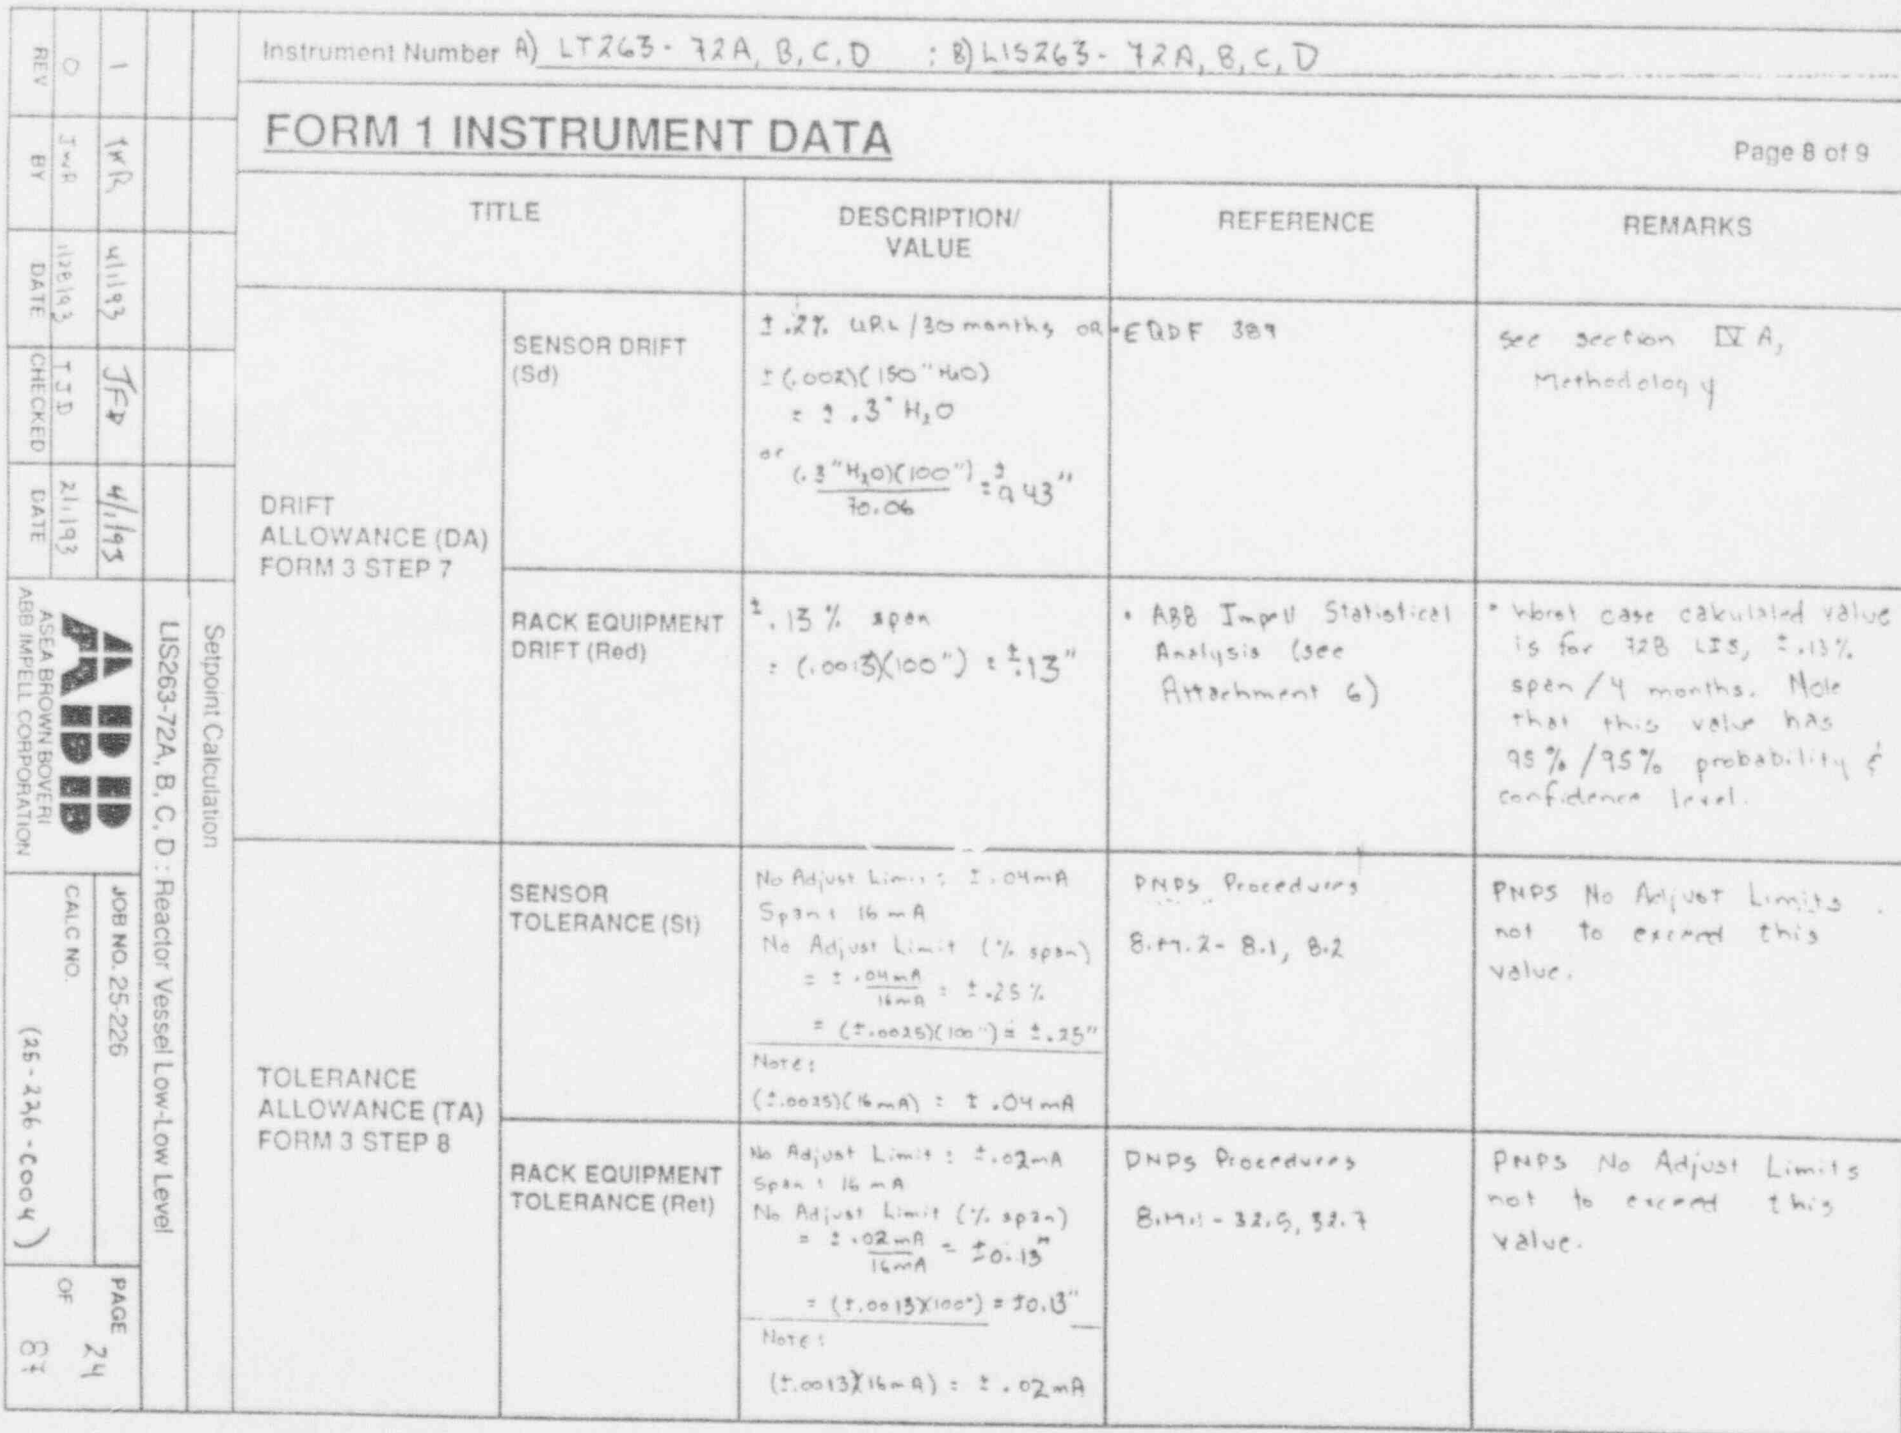 Instrument Number A) LT263-72A, B, C, D ; B) LIS263-72A, B, C, D
FORM 1 INSTRUMENT DATA
Page 8 of 9
TITLE
DESCRIPTION/
VALUE
REFERENCE
REMARKS
DRIFT
ALLOWANCE (DA)
FORM 3 STEP 7
SENSOR DRIFT
(Sd)
± .2% URL/30 months OR
±(.002)(150"H2O)
= ± .3" H2O
or
(.3"H2O)(100") = ±
70.06
.43"
• EQDF 389
See section IV A,
Methodology
RACK EQUIPMENT
DRIFT (Red)
± .13% span
= (.0013)(100") = ±.13"
• ABB Impell Statistical
Analysis (see
Attachment 6)
• Worst case calculated value
is for 72B LIS, ±.13%
span/4 months. Note
that this value has
95%/95% probability &
confidence level.
TOLERANCE
ALLOWANCE (TA)
FORM 3 STEP 8
SENSOR
TOLERANCE (St)
No Adjust Limit: ±.04mA
Span: 16 mA
No Adjust Limit (% span)
= ± .04mA = ±.25%
16mA
= (±.0025)(100") = ±.25"
Note:
(±.0025)(16mA) = ± .04mA
PNPS Procedures
8.M.2-8.1, 8.2
PNPS No Adjust Limits
not to exceed this
value.
RACK EQUIPMENT
TOLERANCE (Ret)
No Adjust Limit: ±.02mA
Span: 16 mA
No Adjust Limit (% span)
= ± .02mA = ±0.13"
16mA
= (±.0013)(100") = ±0.13"
Note:
(±.0013)(16mA) = ± .02mA
PNPS Procedures
8.M.1-32.5, 32.7
PNPS No Adjust Limits
not to exceed this
value.
Setpoint Calculation
LIS263-72A, B, C, D : Reactor Vessel Low-Low Level
1 JWR 4/1/93 JFD 4/1/93
0 JWR 1/28/93 TJD 2/1/93
REV BY DATE CHECKED DATE
ABB
ASEA BROWN BOVERI
ABB IMPELL CORPORATION
JOB NO. 25-226
CALC NO.
(25-226-C004)
PAGE 24
OF 87